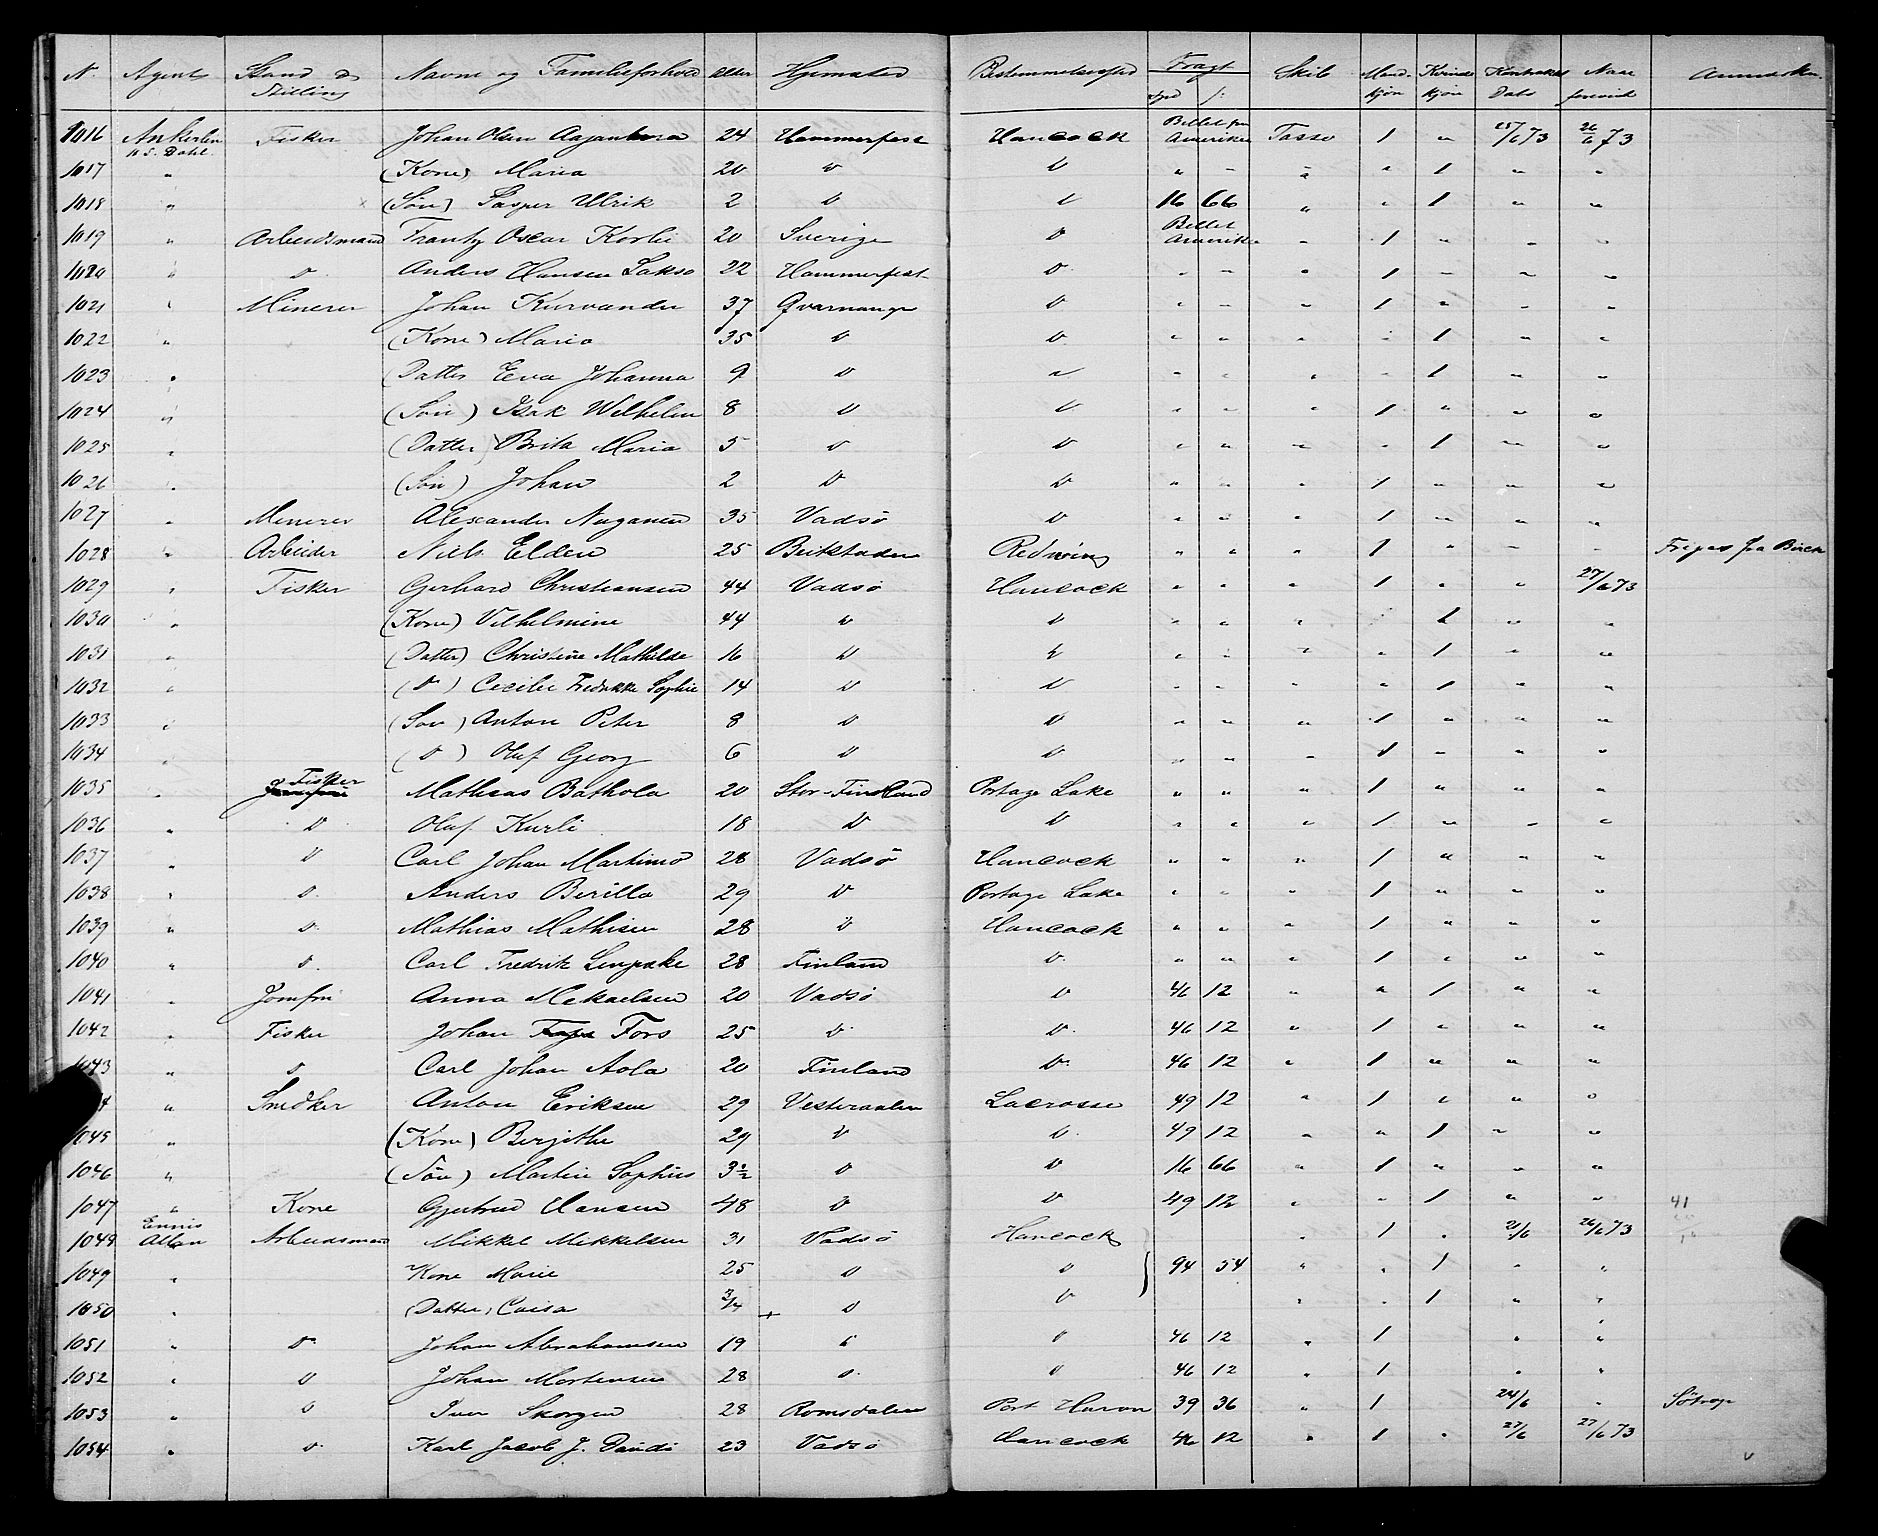 N. Agent Stand & Stilling Navne og Familieforhold Alder Hjemsted Bestemmelsessted Fragt Spd ß: Skib Mandkjön Kvindekjön Kontrakts Dato Naar
1016 Ankerlin v. S. Dahl Fisker Johan Olsen 24 Hammerfest Hancock Billet fra Amerika Tasso 1 " 25/6 73 26/6 73
1017 " (Kone) Maria 20 D D " " " " 1 " "
1018 " (Sön) Casper Ulrik 2 D D 16 66 " " 1 " "
1019 " Arbeidsmand Frantz Oscar Korbi 20 Sverige D Billet Amerika " 1 " " "
1020 " D Anders Hansen Sakso 22 Hammerfest D " " " 1 " " "
1021 " Minerer Johan Kurvander 37 Qvænangen D " " " 1 " " "
1022 " (Kone) Maria 35 D D " " " " 1 " "
1023 " Datter Eva Johanna 9 D D " " " " 1 " "
1024 " (Sön) Isak Wilhelm 8 D D " " " 1 " " "
1025 " (Datter) Brita Maria 5 D D " " " " 1 " "
1026 " (Sön) Johan 2 D D " " " 1 " " "
1027 " Minerer Alexander Nuganen 35 Vadsö D " " " 1 " " "
1028 " Arbeider Niels Elden 25 Beitstaden Redwing " " " 1 " " " Fripas fra
1029 " Fisker Gerhard Christiansen 44 Vadsö Hancock " " " 1 " " 27/6 73
1030 " (Kone) Vilhelmine 44 D D " " " " 1 " "
1031 " (Datter) Christine Mathilde 16 D D " " " " 1 " "
1032 " (D) Cecilie Fredrikke Sophie 14 D D " " " " 1 " "
1033 " (Sön) Anton Peter 8 D D " " " 1 " " "
1034 " (D) Oluf Georg 6 D D " " " 1 " " "
1035 " Fisker Mathias Bathola 20 Stor-Finland Portage Lake " " " 1 " " "
1036 " D Oluf Kurli 18 D D " " " 1 " " "
1037 " D Carl Johan Martimo 28 Vadsö Hancock " " " 1 " " "
1038 " D Anders Berilla 29 D Portage Lake " " " 1 " " "
1039 " D Mathias Mathisen 28 D Hancock " " " 1 " " "
1040 " D. Carl Fredrik 28 Finland D. " " " 1 " " "
1041 " Jomfru Anna Mekaelsen 20 Vadsö D 46 12 " " 1 " "
1042 " Fisker Johan Fors 25 D D. 46 12 " 1 " " "
1043 " D Carl Johan Aola 20 Finland D. 46 12 " 1 " " "
4 " Snedker Anton Eriksen 29 Vesteraalen Lacrosse 49 12 " 1 " " "
1045 " (Kone) Berjithe 29 D D. 49 12 " " 1 " "
1046 " (Sön) Martin Sophus 3½ D D 16 66 " 1 " " "
1047 " Kone Gjertrud Hansen 48 D D 49 12 " " 1 " " 41
1048 Ennis Allan Arbeidsmand Mikkel Mikkelsen 31 Vadsö Hancock " 1 " 21/6 26/6 73
1049 " Kone Marie 25 D D 94 54 " " 1 " "
1050 " (Datter) Caisa 3/4 D D " " 1 " "
1051 " D Johan Abrahamsen 19 " D 46 12 " 1 " "
1052 " D Johan Mortensen 28 D. D 46 12 " 1 " "
1053 " D Iver Skorgen 28 Romsdalen Port Huron 39 36 " 1 24/6 "
1054 " D Karl Jacob J. Daudi 23 Vadsö Hancock 46 12 " 1 " 27/6 27/6 73